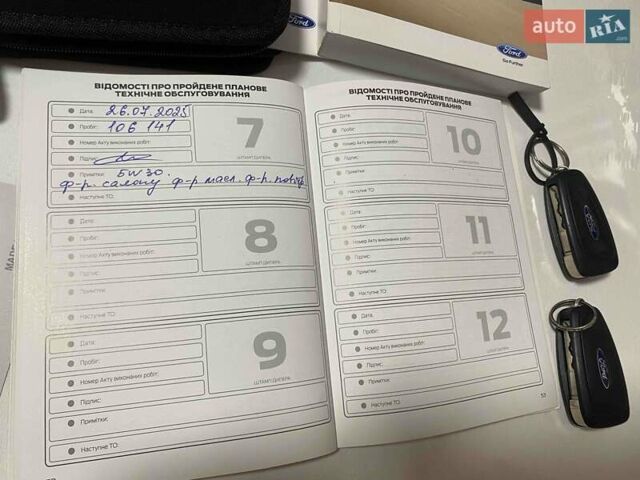 Ford
Ford
Go Further
auto RIA.com
ВІДОМОСТІ ПРО ПРОЙДЕНЕ ПЛАНОВЕ
ТЕХНІЧНЕ ОБСЛУГОВУВАННЯ
Дата: 26.07.2025
Пробіг: 106 141
Номер Акту виконаних робіт:
Підпис:
7
ШТАМП ДИЛЕРА
Примітки: 5W30.
ф-р. салону ф-р масл. ф-р. повітр
Наступне ТО:
Дата:
Пробіг:
Номер Акту виконаних робіт:
Підпис:
8
ШТАМП ДИЛЕРА
Примітки:
Наступне ТО:
Дата:
Пробіг:
Номер Акту виконаних робіт:
Підпис:
9
ШТАМП ДИЛЕРА
Примітки:
Наступне ТО:
ВІДОМОСТІ ПРО ПРОЙДЕНЕ ПЛАНОВЕ
ТЕХНІЧНЕ ОБСЛУГОВУВАННЯ
Дата:
Пробіг:
Номер Акту виконаних робіт:
Підпис:
10
ШТАМП ДИЛЕРА
Примітки:
Наступне ТО:
Дата:
Пробіг:
Номер Акту виконаних робіт:
Підпис:
11
ШТАМП ДИЛЕРА
Примітки:
Наступне ТО:
Дата:
Пробіг:
Номер Акту виконаних робіт:
Підпис:
12
ШТАМП ДИЛЕРА
Примітки:
Наступне ТО:
53
Ford
Ford